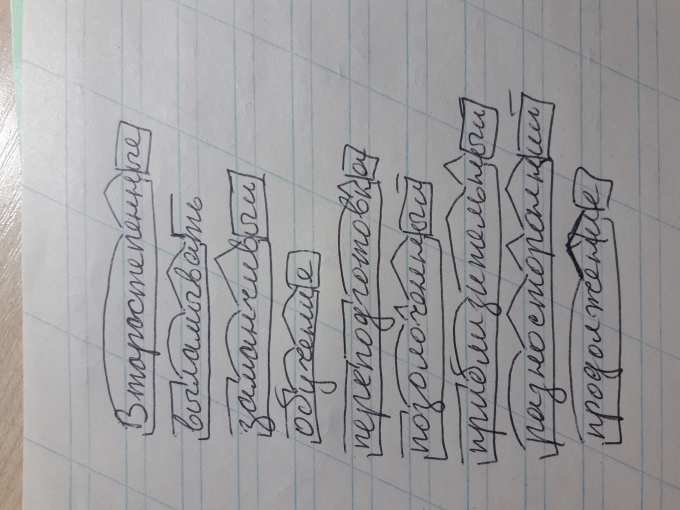 Второстепенные
выламывать
заманчивый
обучение
переподготовка
позолоченный
приблизительный
разносторонний
продолжение